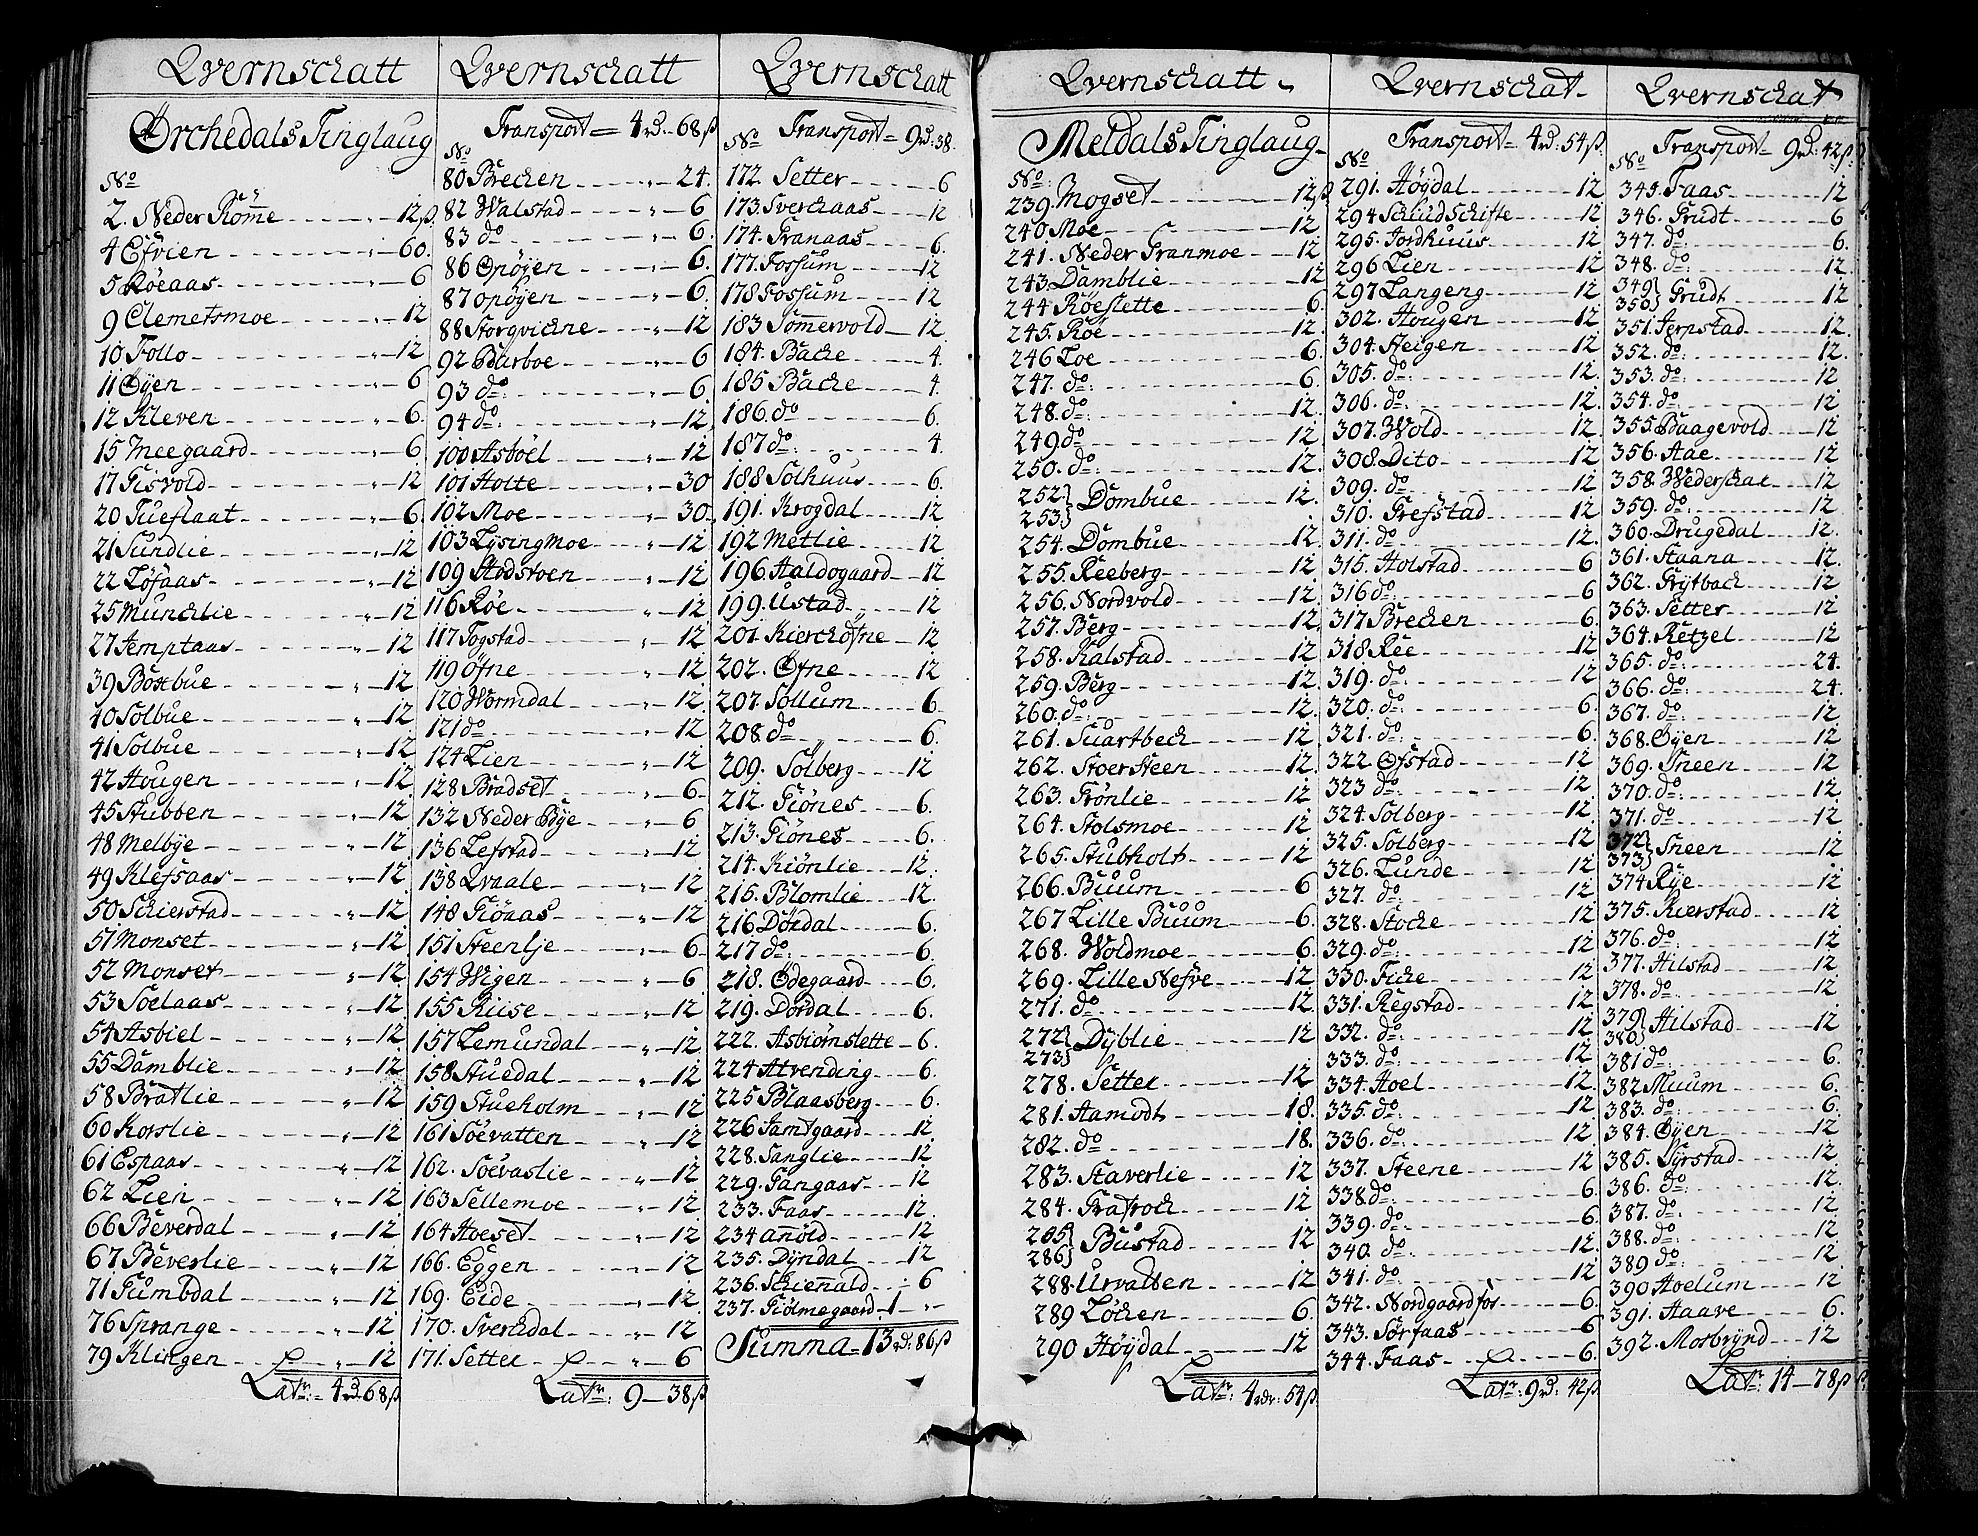 Qvernschatt
Ørchedals Tinglaug
No
2. Neder Rømme - - - - „ - 12 ß
4 Efvien - - - - - „ - 60.
5 Røeaas - - - - - „ - 6
9 Clemetsmoe - - - - „ - 12
10 Follo - - - - - „ - 12
11 Øyen - - - - - „ - 6
12 Kleven - - - - - „ - 6.
15 Meegaard - - - - „ - 6
17 Gisvold - - - - - „ - 12
20 Tueflaat - - - - „ - 6
21 Sundlie - - - - - „ - 12
22 Løfaas - - - - - „ - 12
25 Munchlie - - - - „ - 12
27 Jemptaas - - - - „ - 12
39 Bostbue - - - - „ - 12
40 Solbue - - - - - „ - 12
41 Solbue - - - - - „ - 12
42 Hougen - - - - - „ - 12
45 Stubben - - - - „ - 12
48 Melbye - - - - - „ - 12
49 Klefsaas - - - - „ - 12
50 Schierstad - - - „ - 12
51 Monset - - - - - „ - 12
52 Monset - - - - - „ - 12
53 Soelaas - - - - „ - 12
54 Asbiel - - - - - „ - 12
55 Damblie - - - - „ - 12
58 Bratlie - - - - „ - 12
60 Korslie - - - - „ - 12
61 Espaas - - - - - „ - 12
62 Lien - - - - - - „ - 12
66 Beverdal - - - - „ - 12
67 Beverlie - - - - „ - 12
71 Gumbdal - - - - „ - 12
76 Sprange - - - - „ - 12
79 Klingen - - - - „ - 12
Latr: - 4 rd 68 ß
Qvernschatt
Transport = 4 rd. - 68 ß
No
80 Brechen - - - „ - 24.
82 Walstad - - - „ - 6
83 do - - - - - „ - 6.
86 Opøyen - - - - „ - 6.
87 Opøyen - - - - „ - 6.
88 Storgvichne - - „ - 12
92 Barboe - - - - „ - 6
93 do: - - - - - „ - 6
94 do: - - - - - „ - 12
100 Asbøel - - - „ - 12
101 Holte - - - - „ - 30
102 Moe - - - - - „ - 30.
103 Lysing Moe - - „ - 12
109 Hodstoen - - - „ - 12
116 Røe - - - - - „ - 12
117 Togstad - - - „ - 12
119 Øfne - - - - „ - 12
120 Wormdal - - - - 12
121 do - - - - - „ - 12
124 Lien - - - - „ - 12
128 Bradset - - - „ - 6
132 Neder Bye - - „ - 6
136 Lefstad - - - „ - 12
138 Qvaale - - - - „ - 12
148 Giøaas - - - - „ - 12
151 Steenlje - - - „ - 6
154 Wigen - - - - „ - 6
155 Ruse - - - - „ - 12
157 Lemundal - - - „ - 12
158 Stuedal - - - „ - 12
159 Stueholm - - - „ - 12
161 Soevatten - - „ - 12
162. Soevaslie - - „ - 12
163 Sellemoe - - - „ - 12
164 Hoeset - - - - „ - 12
166. Eggen - - - „ - 12
169. Eide - - - - „ - 12
170. Sverchdal - - „ - 12
171. Setter - - - „ - 6
Latr: 9 - 38 ß
Qvernschatt
No Transport = 9 rd: 38.
172. Setter - - - - 6
173. Sverchaas - - - 12
174. Granaas - - - - 6.
177. Fossum - - - - 12
178 Fossum - - - - 12
183 Sommervold - - 12
184. Bache - - - - 4.
185 Bache - - - - 4.
186. do - - - - - 6.
187 do - - - - - 4.
188 Solhuus - - - - 6.
191. Krogdal - - - 12
192 Metlie - - - - 12
196. Haldogaard - - 12
199. Ustad - - - - 12
201 Kierchøfne - - 12
202. Øfne - - - - 12
207. Sollum - - - - 6.
208 do - - - - - 6.
209. Solberg - - - 12
212. Giønes - - - - 6.
213. Giønes - - - - 6.
214. Kiønlie - - - 12.
215. Blomlie - - - 12.
216 Dørdal - - - - 6.
217 do - - - - - 6.
218. Ødegaard - - - 6.
219. Dørdal - - - - 6.
222. Asbiørnslette - 6.
224 Atvending - - - 6.
225 Blaasberg - - - 6.
226 Samtgaard - - - 12
228. Sanglie - - - 12
229. Gangaas - - - 12
233. Faas - - - - 12.
234 Annøld - - - - 12
235. Dyrdal - - - 12
236. Schienald - - 6
237. Giølmegaard - 1 - „ -
Summa = 13 rd: 86 ß
Qvernschatt
Meldals Tinglaug
No:
239. Mogset - - - - 12 ß
240 Moe - - - - - 12
241. Neder Granmoe - - 12
243. Damblie - - - - 12
244 Røeslette - - - - 6.
245. Røe - - - - - 12
246 Loe - - - - - 6.
247. do: - - - - - 6.
248. do: - - - - - 12.
249 do: - - - - - 12
250. do: - - - - - 12.
252. } Dombue - - - - 12.
253. }
254. Dombue - - - - 12.
255. Reeberg - - - - 12
256. Nordvold - - - - 12
257. Berg - - - - - 12.
258. Kalstad - - - - 12
259. Berg - - - - - 12.
260. do - - - - - 12.
261. Suartbech - - - 12.
262. Stoer Steen - - - 12.
263. Grønlie - - - - 12
264. Stolsmoe - - - - 12
265. Stubholt - - - - 12
266. Buum - - - - - 6
267 Lille Buum - - - 6.
268. Woldmoe - - - - 6
269. Lille Nefve - - - 12
271. do - - - - - 12.
272 } Dyblie - - - - 12
273 }
278. Setter - - - - 12
281. Aamodt - - - - 18.
282. do - - - - - 18.
283. Staverlie - - - 12
284. Grastroch - - - 12
285 } Bustad - - - - 12
286 }
288. Urvatten - - - 12
289 Løchen - - - - 6.
290 Høydal - - - - 12
Latr: 4 rdr: 54 ß.
Qvernschat
Transport = 4 rd: 54 ß.
No
291. Høydal - - - - 12
294 Schiudschifte - - 12
295. Jordhuus - - - 12
296 Lien - - - - - 12
297 Langeng - - - - 12
302. Hougen - - - - 12.
304. Steigen - - - - 12
305. do - - - - - 12.
306. do - - - - - 12.
307. Wold - - - - - 12.
308. Dito - - - - - 12
309. do - - - - - 12
310. Grefstad - - - 12
311. do - - - - - 12
315. Holstad - - - - 6
316 do - - - - - 6
317 Brechen - - - - 6.
318 Ree - - - - - 12
319. do - - - - - 12
320. do - - - - - 6.
321. do - - - - - 6.
322 Ofstad - - - - 12
323 do - - - - - 12
324. Solberg - - - - 12
325. Solberg - - - - 12
326. Lunde - - - - 12
327. do - - - - - 12
328. Stoche - - - - 12
329. do - - - - - 12
330. Fiche - - - - 12
331. Regstad - - - - 12
332. do - - - - - 12
333. do - - - - - 12
334. Hoel - - - - - 12.
335. do - - - - - 12
336. do - - - - - 12
337. Steene - - - - 12
338 do - - - - - 6.
339. do - - - - - 6.
340. do - - - - - 12.
341. do - - - - - 12
342. Nordgaardfos - - 6.
343. Sørfaas - - - - 6
344. Faas - - - - - 6.
Latr: 9 rd: 42 ß.
Qvernschat
Transport = 9 rd: 42 ß.
No
345. Faas - - - - 12
346. Grudt - - - - 6
347. do - - - - - 6.
348. do - - - - - 12.
349 } Grudt - - - - 12
350 }
351. Jerpstad - - - 12.
352. do - - - - - 12.
353. do - - - - - 12
354. do - - - - - 12
355 Baagevold - - - 12
356. Aae - - - - - 12
358. Nederschae - - 12
359. do - - - - - 12
360. Drugedal - - - 12.
361. Haana - - - - 12.
362. Grytbach - - - 12
363. Setter - - - - 12
364. Retzel - - - - 12
365. do - - - - - 24.
366. do - - - - - 24.
367. do - - - - - 12
368. Øyen - - - - - 12
369. Sneen - - - - 12
370. do - - - - - 12
371. do - - - - - 12
372 } Sneen - - - - 12
373 }
374 Rye - - - - - 12
375. Kierstad - - - 12
376. do - - - - - 12
377. Hilstad - - - 12
378. do - - - - - 12
379 } Hilstad - - - 12
380 }
381 do - - - - - 6.
382 Muum - - - - - 6.
383. do - - - - - 6.
384. Øyen - - - - - 12
385. Syrstad - - - 12
386. do - - - - - 12.
387. do - - - - - 12
388. do - - - - - 12
389 do - - - - - 12
390 Hoelum - - - - 12
391. Haave - - - - 6.
392. Mosbrynd - - - 12
Latr: 14 - 78 ß